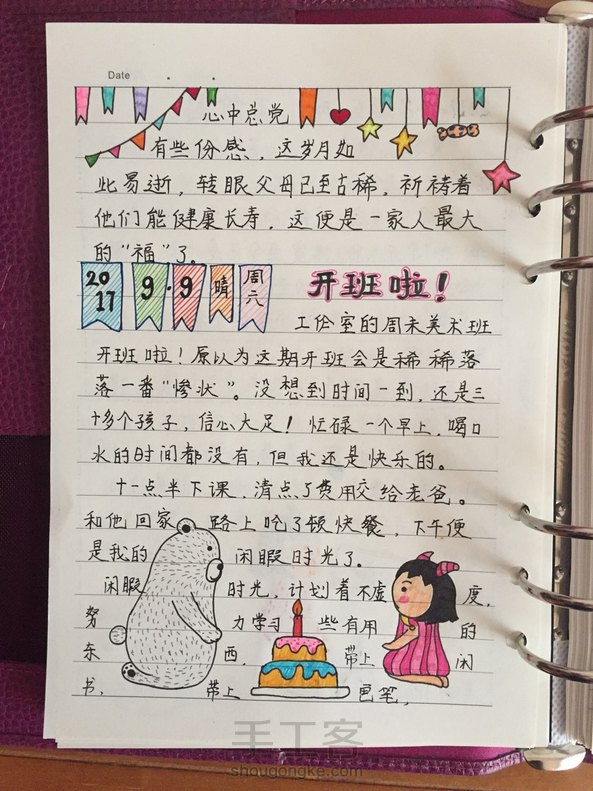 Date
心中总觉
有些份感，这岁月如
此易逝，转眼父母已至古稀，祈祷着
他们能健康长寿，这便是一家人最大
的“福”了。
2017 9.9 晴 周六 开班啦！
工作室的周末美术班
开班啦！原以为这期开班会是稀稀落
落一番“惨状”。没想到时间一到，还是三
十多个孩子，信心大足！忙碌一个早上，喝口
水的时间都没有，但我还是快乐的。
十一点半下课，清点了费用交给老爸。
和他回家 路上吃了顿快餐，下午便
是我的 闲暇时光了。
闲暇 时光，计划着不虚 度，
努 力学习 些有用 的
东 西， 带上 闲
书， 带上 画笔，
手工客
shougongke.com